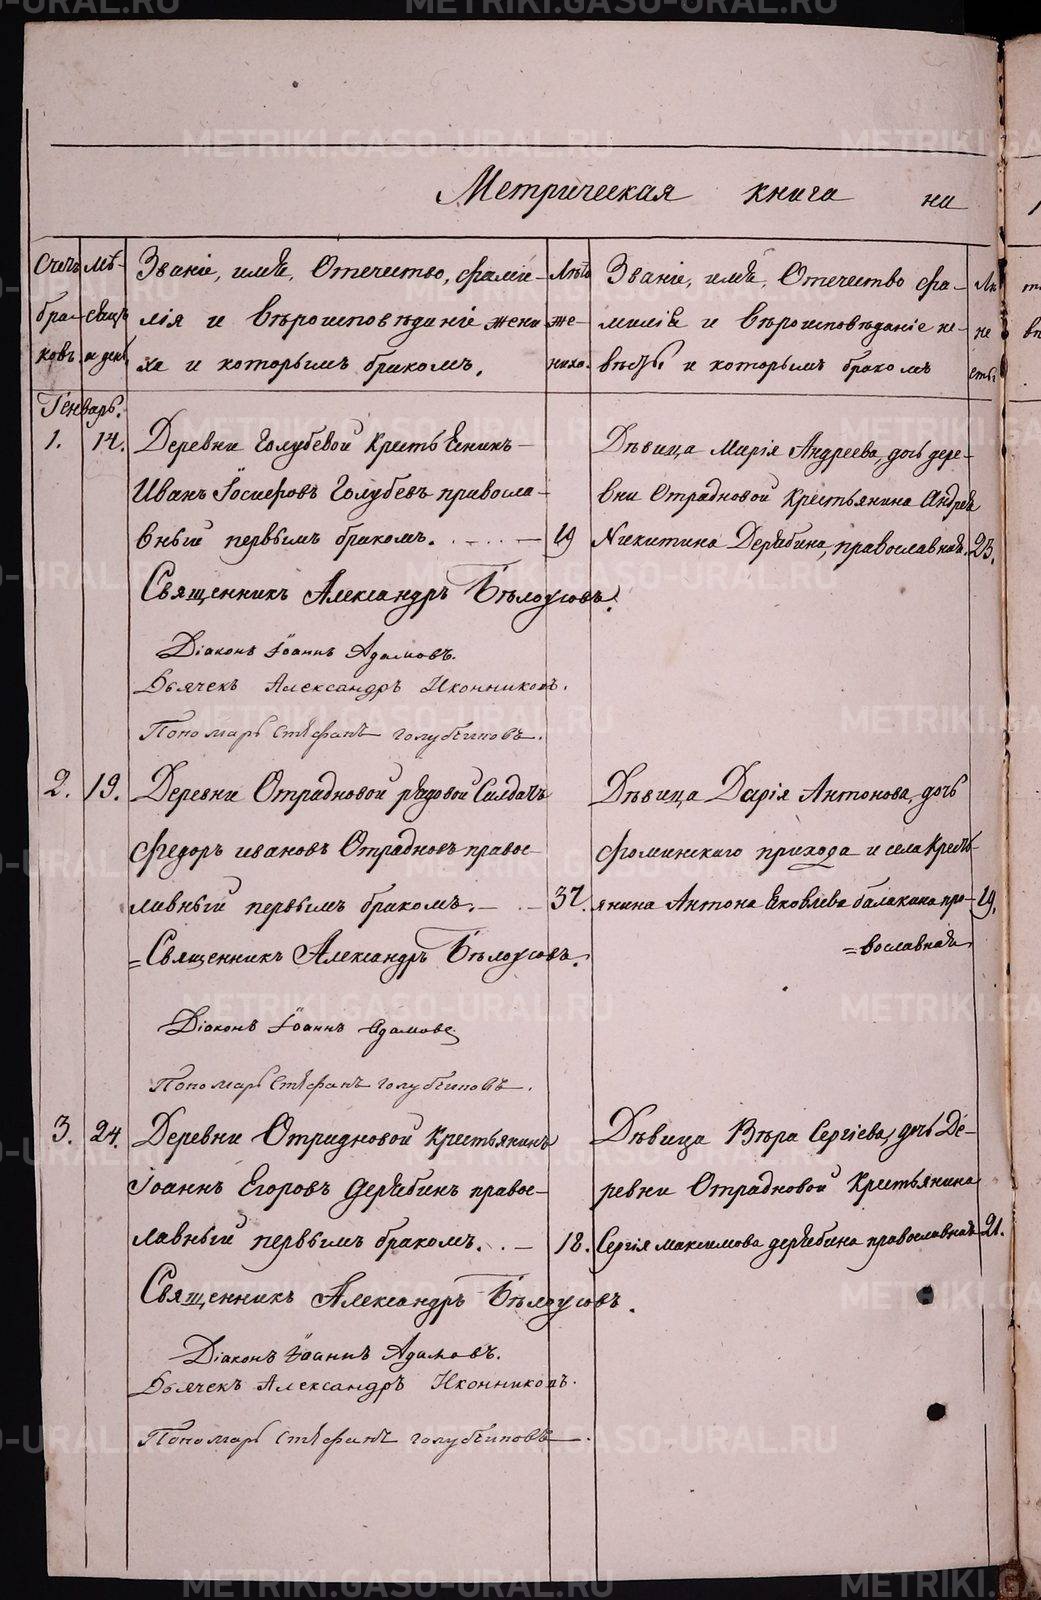 Метрическая книга на
Счетъ браковъ.
Мѣсяцъ и день.
Званіе, имя, Отечество, фами-
лія и Вѣроисповѣданіе жени
ха и которымъ бракомъ.
Лѣта жениха.
Званіе, имя, Отечество фа-
милія и Вѣроисповѣданіе не-
вѣсты и которымъ бракомъ
Генварь.
1. 14. Деревни Голубевой крестьянинъ
Иванъ Іосифовъ Голубевъ правосла-
вный первымъ бракомъ. 19
Дѣвица Марія Андреева, дочь дере-
вни Отрадновой Крестьянина Андрея
Никитина Дерябина, православная. 23.
Священникъ Александръ Бѣлоусовъ.
Діаконъ Іоаннъ Адамовъ.
Дьячекъ Александръ Иконниковъ.
Пономарь Стефанъ Голубчиковъ.
2. 19. Деревни Отрадновой рядовой Салдатъ
Федоръ ивановъ Отрадновъ правос-
лавный первымъ бракомъ. 37.
Дѣвица Дарія Антонова, дочь
Фоминскаго прихода и села Кресть-
янина Антона Яковлева балакина пра- 19.
=вославная
=Священникъ Александръ Бѣлоусовъ.
Діаконъ Іоаннъ Адамовъ
Пономарь Стефанъ Голубчиковъ.
3. 24. Деревни Отрадновой крестьянинъ
Іоаннъ Егоровъ Дерябинъ правос-
лавный первымъ бракомъ. 18.
Дѣвица Вѣра Сергіева, дочь Де-
ревни Отрадновой Крестьянина
Сергія максимова дерябина православная 21.
Священникъ Александръ Бѣлоусовъ.
Діаконъ Іоаннъ Адамовъ.
Дьячекъ Александръ Иконниковъ.
Пономарь Стефанъ Голубчиковъ.
METRIKI.GASO-URAL.RU